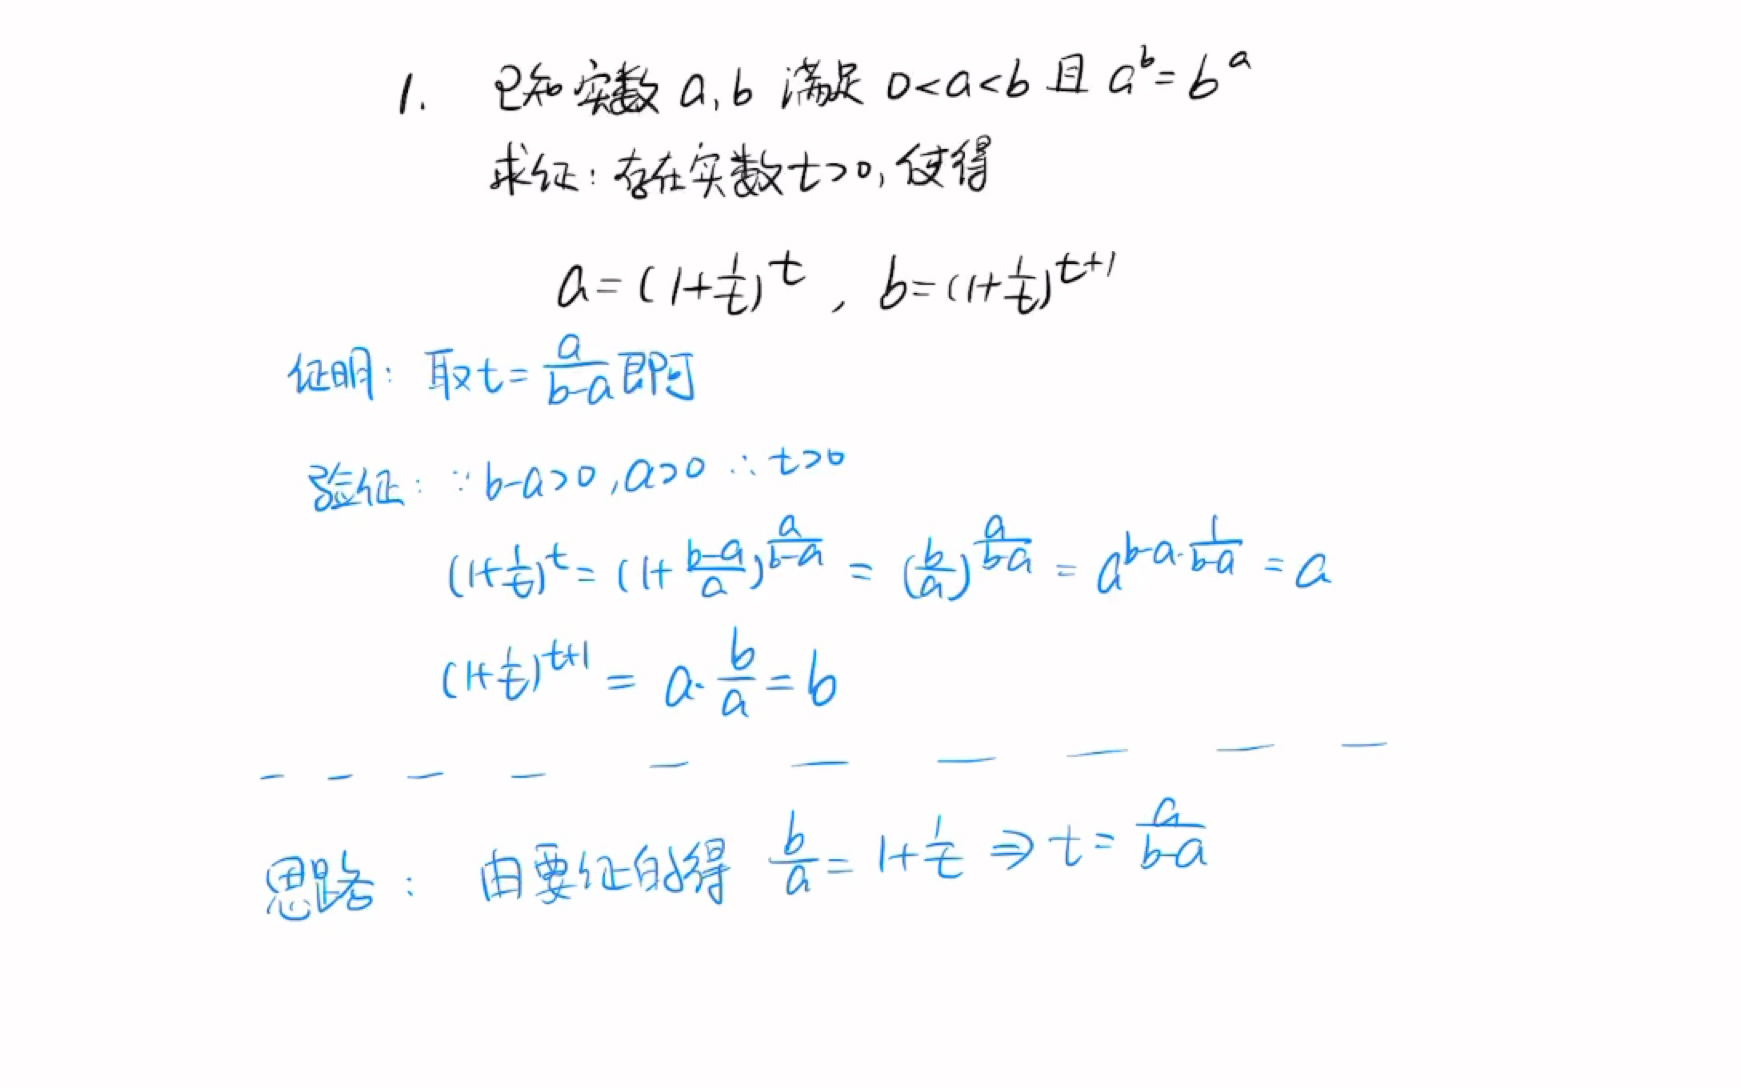 1. 已知实数 a,b 满足 0<a<b 且 a^b=b^a
求证:存在实数t>0,使得
a=(1+1/t)^t , b=(1+1/t)^{t+1}
证明: 取t=a/(b-a)即可
验证: ∵b-a>0,a>0 ∴t>0
(1+1/t)^t=(1+(b-a)/a)^{a/(b-a)} = (b/a)^{a/(b-a)} = a^{b-a·1/(b-a)} = a
(1+1/t)^{t+1} = a·b/a=b
思路: 由要证的得 b/a=1+1/t ⇒ t=a/(b-a)